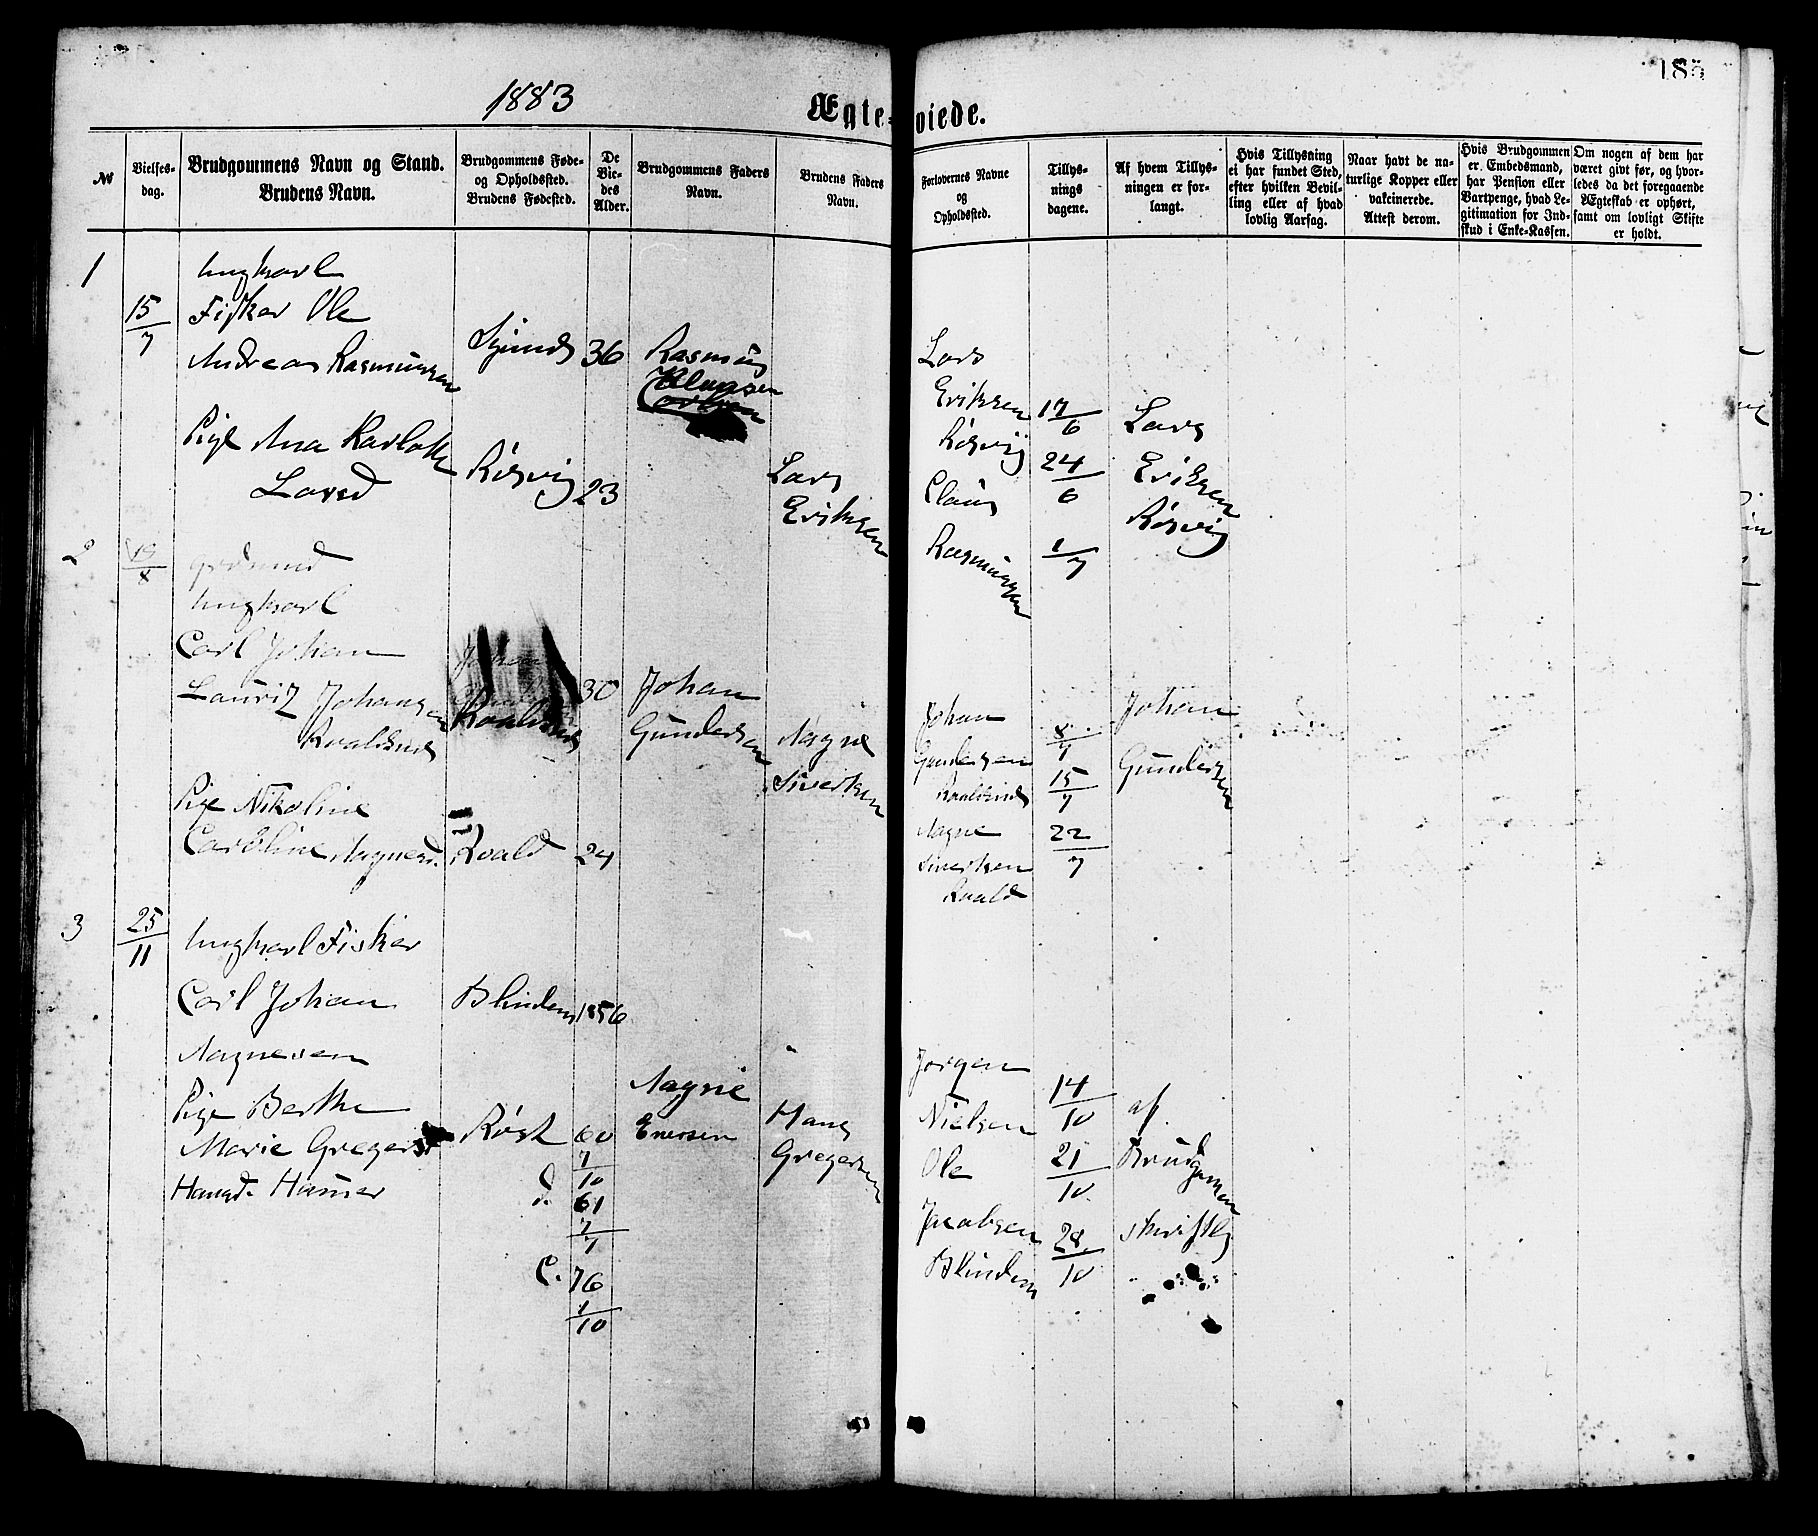 185
1883
Ægte-viede.
№
Vielses-
dag.
Brudgommens Navn og Stand.
Brudens Navn.
Brudgommens Føde-
og Opholdsted.
Brudens Fødested.
De
Vie-
des
Alder.
Brudgommens Faders
Navn.
Brudens Faders
Navn.
Forlovernes Navne
og
Opholdsted.
Tillys-
nings
dagene.
Af hvem Tillys-
ningen er for-
langt.
Hvis Tillysning
ei har fundet Sted,
efter hvilken Bevil-
ling eller af hvad
lovlig Aarsag.
Naar havt de na-
turlige Kopper eller
vakcinerede.
Attest derom.
Hvis Brudgommen
er Embedsmand,
har Pension eller
Vartpenge, hvad Le-
gitimation for Ind-
skud i Enke-Kassen.
Om nogen af dem har
været givt før, og hvor-
ledes da det foregaaende
Ægteskab er ophørt,
samt om lovligt Skifte
er holdt.
1
15/7
Ungkarl
Fisker Ole
Andreas Rasmussen
36
Rasmus
Lars
Eriksen
Røsvig
Claus
Rasmussen
17/6
24/6
1/7
Lars
Eriksen
Røsvig
Pige Ana Karlotte
Larsd
Røsvig
23
Lars
Eriksen
2
19/8
Ungkarl
Carl Johan
Lauritz Johansen
Roaldsnes
Roaldsnes
30
Johan
Gundersen
Aagne
Sivertsen
Johan
Gundersen
Roaldsnes
Aagne
Sivertsen
Roald
8/7
15/7
22/7
Johan
Gundersen
Pige Nikoline
Caroline Aagnesd.
Roald
24
3
25/11
Ungkarl Fisker
Carl Johan
Aagnesen
Blindem
1856
Aagne
Pige Berthe
Marie Gregersd
Røst
60
7/10
d. 61
7/7
C. 76
1/10
Hans
Gregersen
Jørgen
Nielsen
Ole
Jacobsen
Blindem
14/10
21/10
28/10
af
Brudgomen
skriftlig